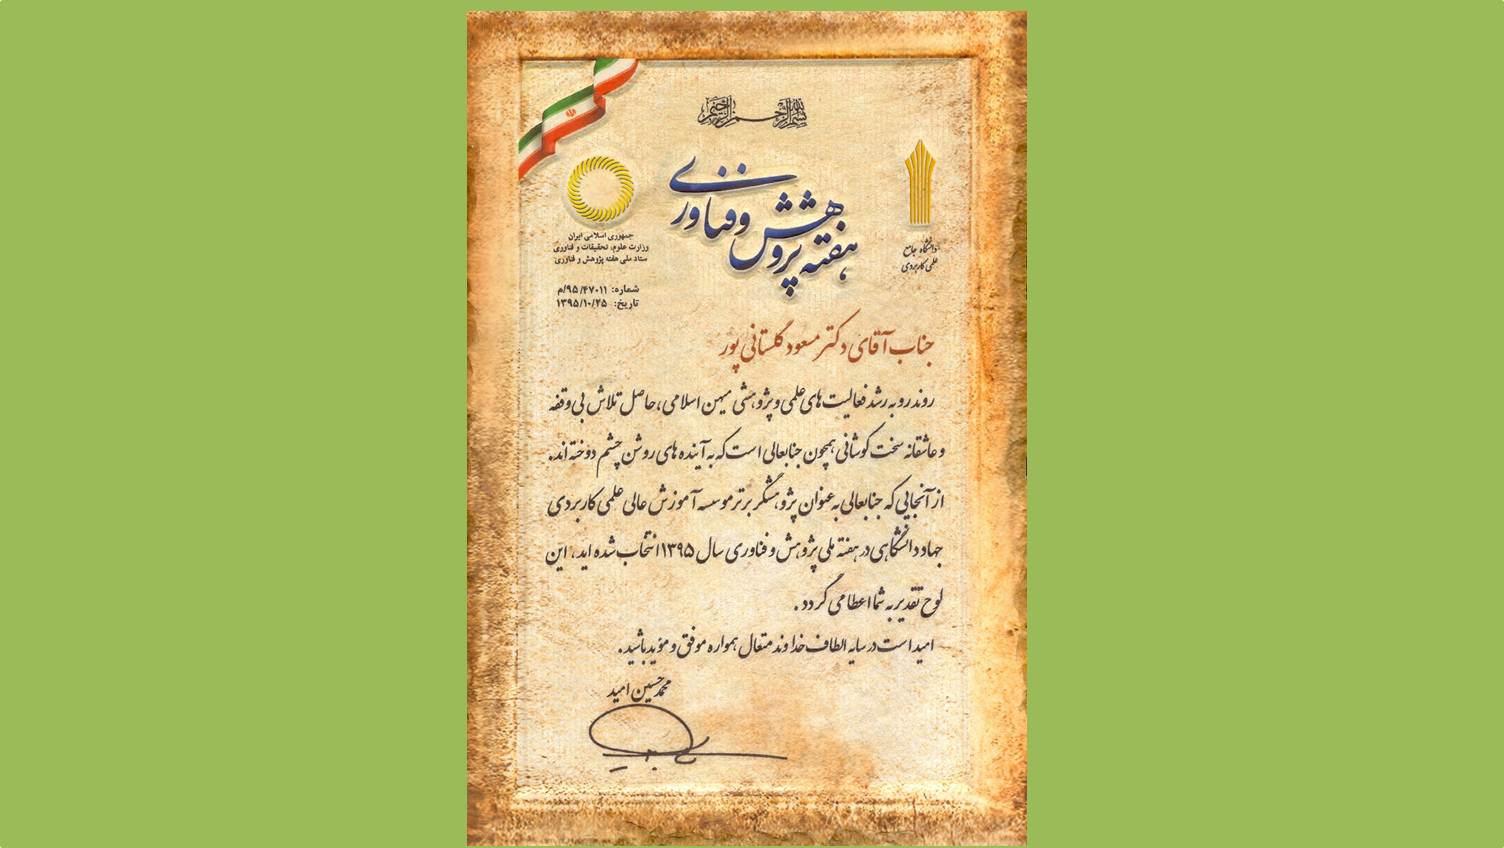 بسم الله الرحمن الرحیم
هفته پژوهش و فناوری
دانشگاه جامع
علمی کاربردی
جمهوری اسلامی ایران
وزارت علوم، تحقیقات و فناوری
ستاد ملی هفته پژوهش و فناوری
شماره: ۹۵/۴۷۰۱۱/م
تاریخ: ۱۳۹۵/۱۰/۲۵
جناب آقای دکتر مسعود گلستانی پور
روند رو به رشد فعالیت های علمی و پژوهشی میهن اسلامی، حاصل تلاش بی وقفه
و عاشقانه سخت کوشانی همچون جنابعالی است که به آینده های روشن چشم دوخته اند.
از آنجایی که جنابعالی به عنوان پژوهشگر برتر موسسه آموزش عالی علمی کاربردی
جهاد دانشگاهی در هفته ملی پژوهش و فناوری سال ۱۳۹۵ انتخاب شده اید، این
لوح تقدیر به شما اعطا می گردد.
امید است در سایه الطاف خداوند متعال همواره موفق و مؤید باشید.
محمد حسین امید